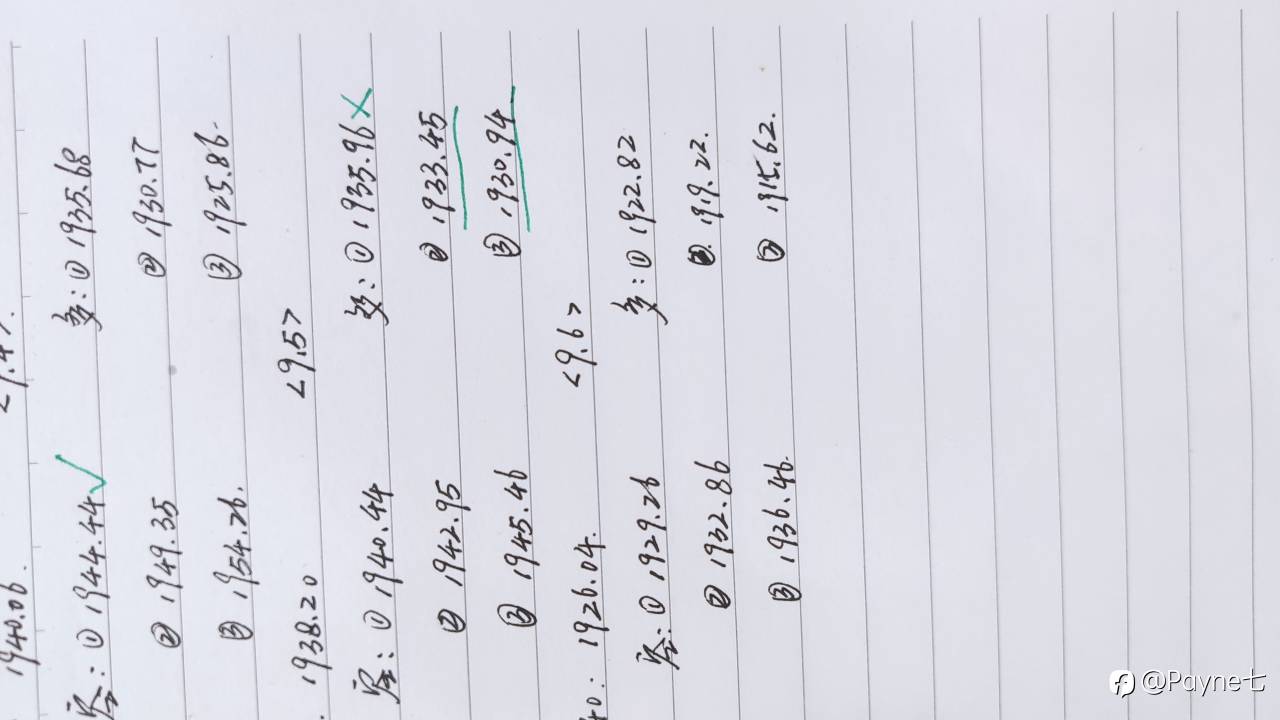 1940.06.
空: ① 1944.44 ✓ 多: ① 1935.68
② 1949.35 ② 1930.77
③ 1954.26. ③ 1925.86.
1938.20 <9.5>
空: ① 1940.44 多: ① 1935.96 ×
② 1942.95 ② 1933.45
③ 1945.46 ③ 1930.94
40: 1926.04. <9.6>
空: ① 1929.26 多: ① 1922.82
② 1932.86 ②. 1919.22.
③ 1936.46. ③ 1915.62.
@Payne七